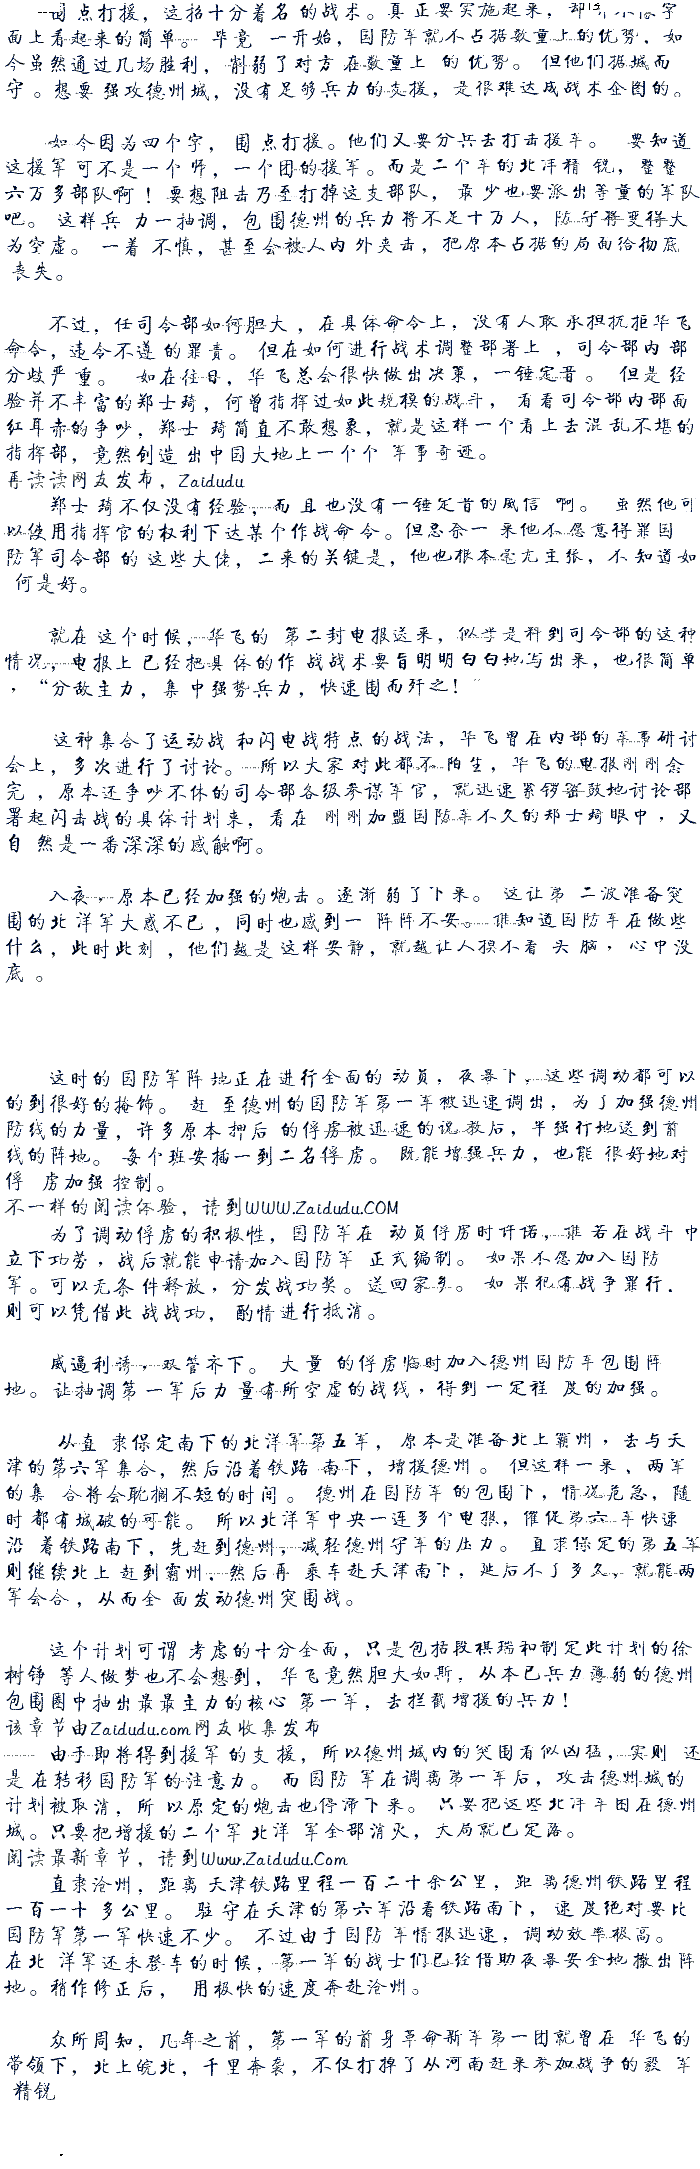 围点打援，这招十分着名的战术。真正要实施起来，却
面上看起来的简单。 毕竟 一开始，国防军就不占据数量上的优势，如
今虽然通过几场胜利，削弱了对方在数量上 的优势。 但他们据城而
守 。想要强攻德州城，没有足够兵力的支援，是很难达成战术企图的。
如今因为四个字，围点打援。他们又要分兵去打击援军。 要知道
这援军可不是一个师，一个团的援军。而是二个军的北洋精 锐，整整
六万多部队啊！要想阻击乃至打掉这支部队， 最少也要派出等量的军队
吧。 这样兵 力一抽调，包围德州的兵力将不足十万人，防守将变得大
为空虚。 一着 不慎，甚至会被人内外夹击，把原本占据的局面给彻底
丧失。
不过，任司令部如何胆大 ，在具体命令上，没有人敢承担抗拒华飞
命令，违令不遵的罪责。 但在如何进行战术调整部署上 ，司令部内部
分歧严重。 如在往日，华飞总会很快做出决策，一锤定音。 但是经
验并不丰富的郑士琦，何曾指挥过如此规模的战斗， 看看司令部内部面
红耳赤的争吵，郑士 琦简直不敢想象，就是这样一个看上去混乱不堪的
指挥部，竟然创造 出中国大地上一个个 军事奇迹。
再读读网友发布，Zaidudu
郑士 琦不仅没有经验，而 且也没有一锤定音的威信 啊。 虽然他可
以使用指挥官的权利下达某个作战命令。但忌奈一 来他不愿意得罪国
防军司令部 的这些大佬，二来的关键是，他也根本毫无主张，不知道如
何是好。
就在 这个时候，华飞的 第二封电报送来，似乎是料到司令部的这种
情况，电报上 已经把具 体的作 战战术要旨明明白白地写出来，也很简单
，“分敌主力，集 中强势兵力，快速围而歼之！”
这种集合了运动战 和闪电战特点 的战法，华飞曾在内部的军事研讨
会上，多次进行了讨论。 所以大家 对此都不陌生，华飞的电报刚刚念
完 ，原本还争吵不休的司令部各级参谋军官，就迅速紧锣密鼓地讨论部
署起闪击战的具体计划来，看在 刚刚加盟国防军不久的郑士琦眼中，又
自 然是一番深深的感触啊。
入夜，原本已经加强的炮击。逐渐 弱了下来。 这让第 二波准备突
围的北 洋军大惑不已 ，同时也感到一 阵阵不安。 谁知道国防军在做些
什么，此时此刻 ，他们越是 这样安静，就越让人摸不着 头 脑， 心中没
底 。
这时的 国防军阵 地正在进行全面的 动员，夜幕下，这些调动都可以
的到很好的掩饰。 赶 至德州的国防军第一军被迅速调出，为了加强德州
防线的力量，许多原本 押后 的俘虏被迅速的说教后，半强行地送到前
线的阵地。 每个班安插一到二名俘虏。 既能增强兵力，也能 很好地对
俘 虏加强 控制。
不一样的阅读体验，请到WWW.Zaidudu.COM
为了调动俘虏的积极性，国防军在 动员俘虏时许诺，谁 若在战斗 中
立下功劳，战后就能申请加入国防军 正式编制。 如果不愿加入国防
军。可以无条 件释放，分发战功奖。送回家乡。 如 果犯有战争罪行，
则可以凭借此 战战功， 酌情进行抵消。
威逼利诱，双管齐下。 大 量 的俘虏临时加入德州国防军包围阵
地。让抽调第一军后力 量有所空虚的战线，得到 一定程 度的加强。
从直 隶保定南下的北洋军第五军， 原本是准备北上霸州，去与天
津的第六军集合，然后沿着铁路 南下，增援德州 。 但这样一来 、两军
的集 合将会耽搁不短的时间 。 德州在国防军 的包围下，情况危急，随
时 都有城破的可能。 所以北洋军中央一连多个电报，催促第六 军快速
沿 着铁路南下，先赶到德州，减轻德州守军的压力。 直隶保定的第五军
则继续北上 赶到霸州，然后再 乘车赴天津南下，延后不了多久，就能两
军会合，从而全 面发动德州突围战。
这个计划可谓 考虑的十分全面，只是包括段祺瑞和制定此计划的徐
树铮 等人做梦也不会想到， 华飞竟然胆大如斯，从本已兵力薄弱的德州
包围圈中抽出最最主力的核心 第一军，去拦截增援的兵力！
该章节由Zaidudu.com网友收集发布
由于即将得到援军 的支 援，所以德州城内的突围看似凶猛，实则 还
是 在转移国防军的注意力。 而 国防 军在调离第一军后，攻击德州城的
计划被取消，所 以原定的炮击也停滞下来。 只要把这些北洋军困在德州
城。只要把增援的二个军 北洋 军全部消灭，大局就已定落。
阅读最新章节，请到Www.Zaidudu.Com
直隶沧州，距离 天津铁路里程一百二十余公里，距 离德州铁路里程
一百一十 多公里。 驻 守在天津的第六军沿着铁路南下， 速 度绝对要比
国防军第一军快速不少。 不过由于国防 军情报迅速，调动效率极高。
在北 洋军还未登车的时候，第一军的战士们已经借助夜幕安全地 撤出阵
地。稍作修正后， 用极快的速度奔赴沧州。
众所周知，几年之前，第一军的前身革命新军第一团就曾在 华飞的
带领下，北上皖北，千里奔袭，不仅打掉了从河南赶来参加战争的毅 军
精锐